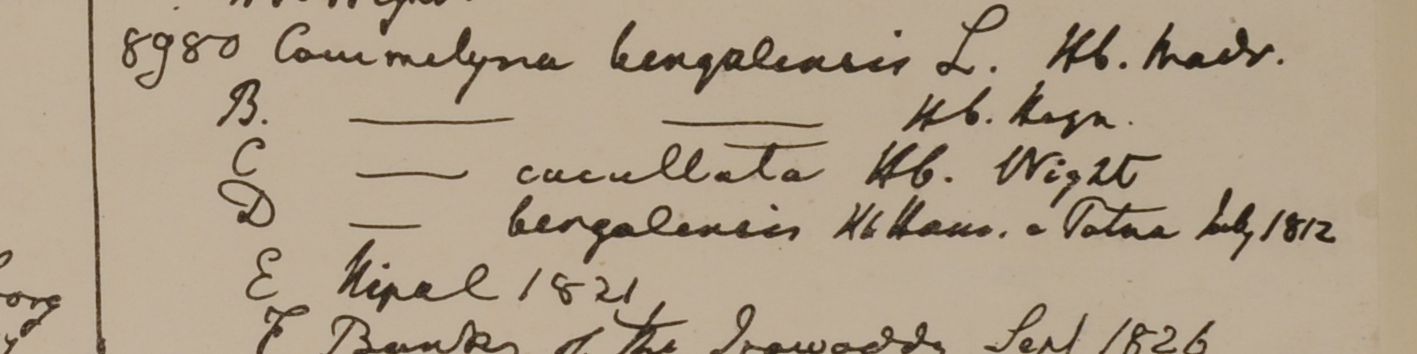 8980 Commelyna bengalensis L. Hb. Madr.
B. —— —— Hb. Heyn.
C —— cucullata Hb. Wight
D — bengalensis Hb Ham. a Patna July 1812
E Nipal 1821
F Banks of the Irawaddy Sept 1826